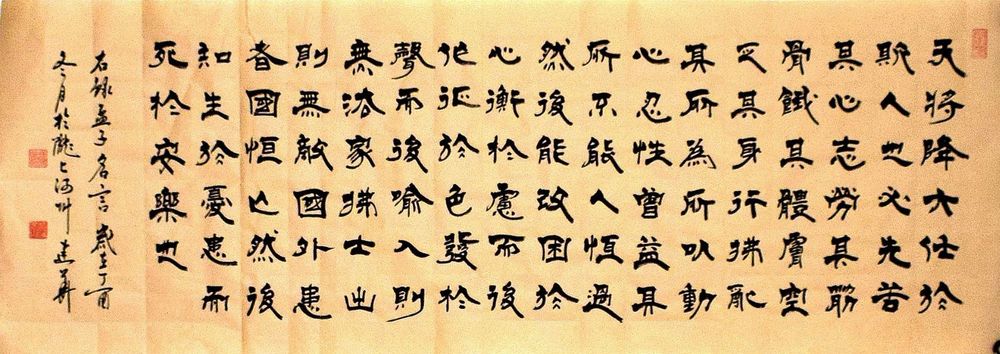 天將降大任於
斯人也必先苦
其心志勞其筋
骨餓其體膚空
乏其身行拂乱
其所為所以動
心忍性曾益其
所不能人恒過
然後能改困於
心衡於慮而後
作征於色發於
聲而後喻入則
無法家拂士出
則無敵國外患
者國恒亡然後
知生於憂患而
死於安樂也
右錄孟子名言歲在丁酉
冬月於隴上河州建華